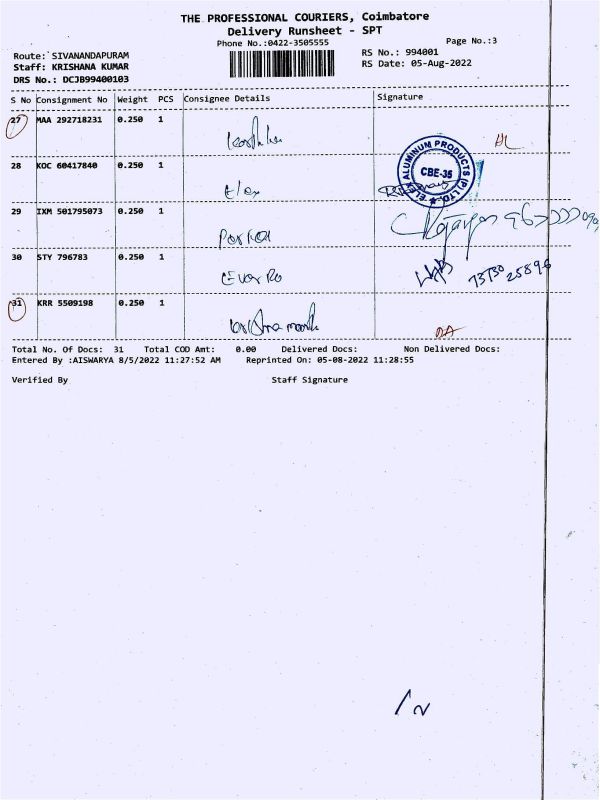 THE PROFESSIONAL COURIERS, Coimbatore
Delivery Runsheet - SPT
Phone No.:0422-3505555
Page No.:3
Route: SIVANANDAPURAM
RS No.: 994001
Staff: KRISHANA KUMAR
RS Date: 05-Aug-2022
DRS No.: DCJB99400103
S No Consignment No Weight PCS Consignee Details Signature
27 MAA 292718231 0.250 1
28 KOC 60417840 0.250 1 Elex
ELEX ALUMINUM PRODUCTS (P) LTD.
CBE-35
29 IXM 501795073 0.250 1
30 STY 796783 0.250 1
73730 25896
31 KRR 5509198 0.250 1
Total No. Of Docs: 31 Total COD Amt: 0.00 Delivered Docs: Non Delivered Docs:
Entered By :AISWARYA 8/5/2022 11:27:52 AM Reprinted On: 05-08-2022 11:28:55
Verified By Staff Signature